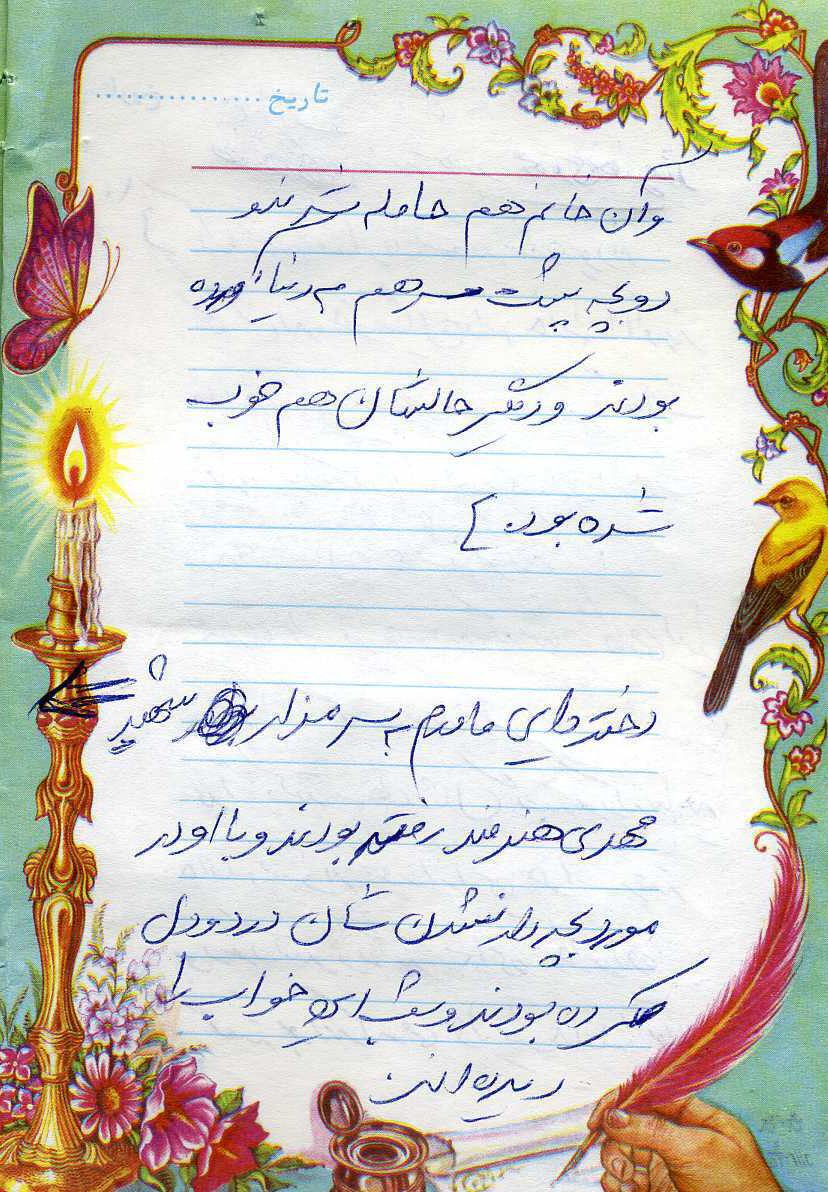 تاریخ ................
وآن خانم هم حامله شدند و
دو بچه پشت سر هم به دنیا آورده
بودند و دیگر حالشان هم خوب
شده بود.]
دختر دایی مادرم به سر مزار شهید
مهدی هنرمند رفته بودند و با او در
مورد بچه دار نشدن شان درد و دل
کرده بودند و شب این خواب را
دیده اند.